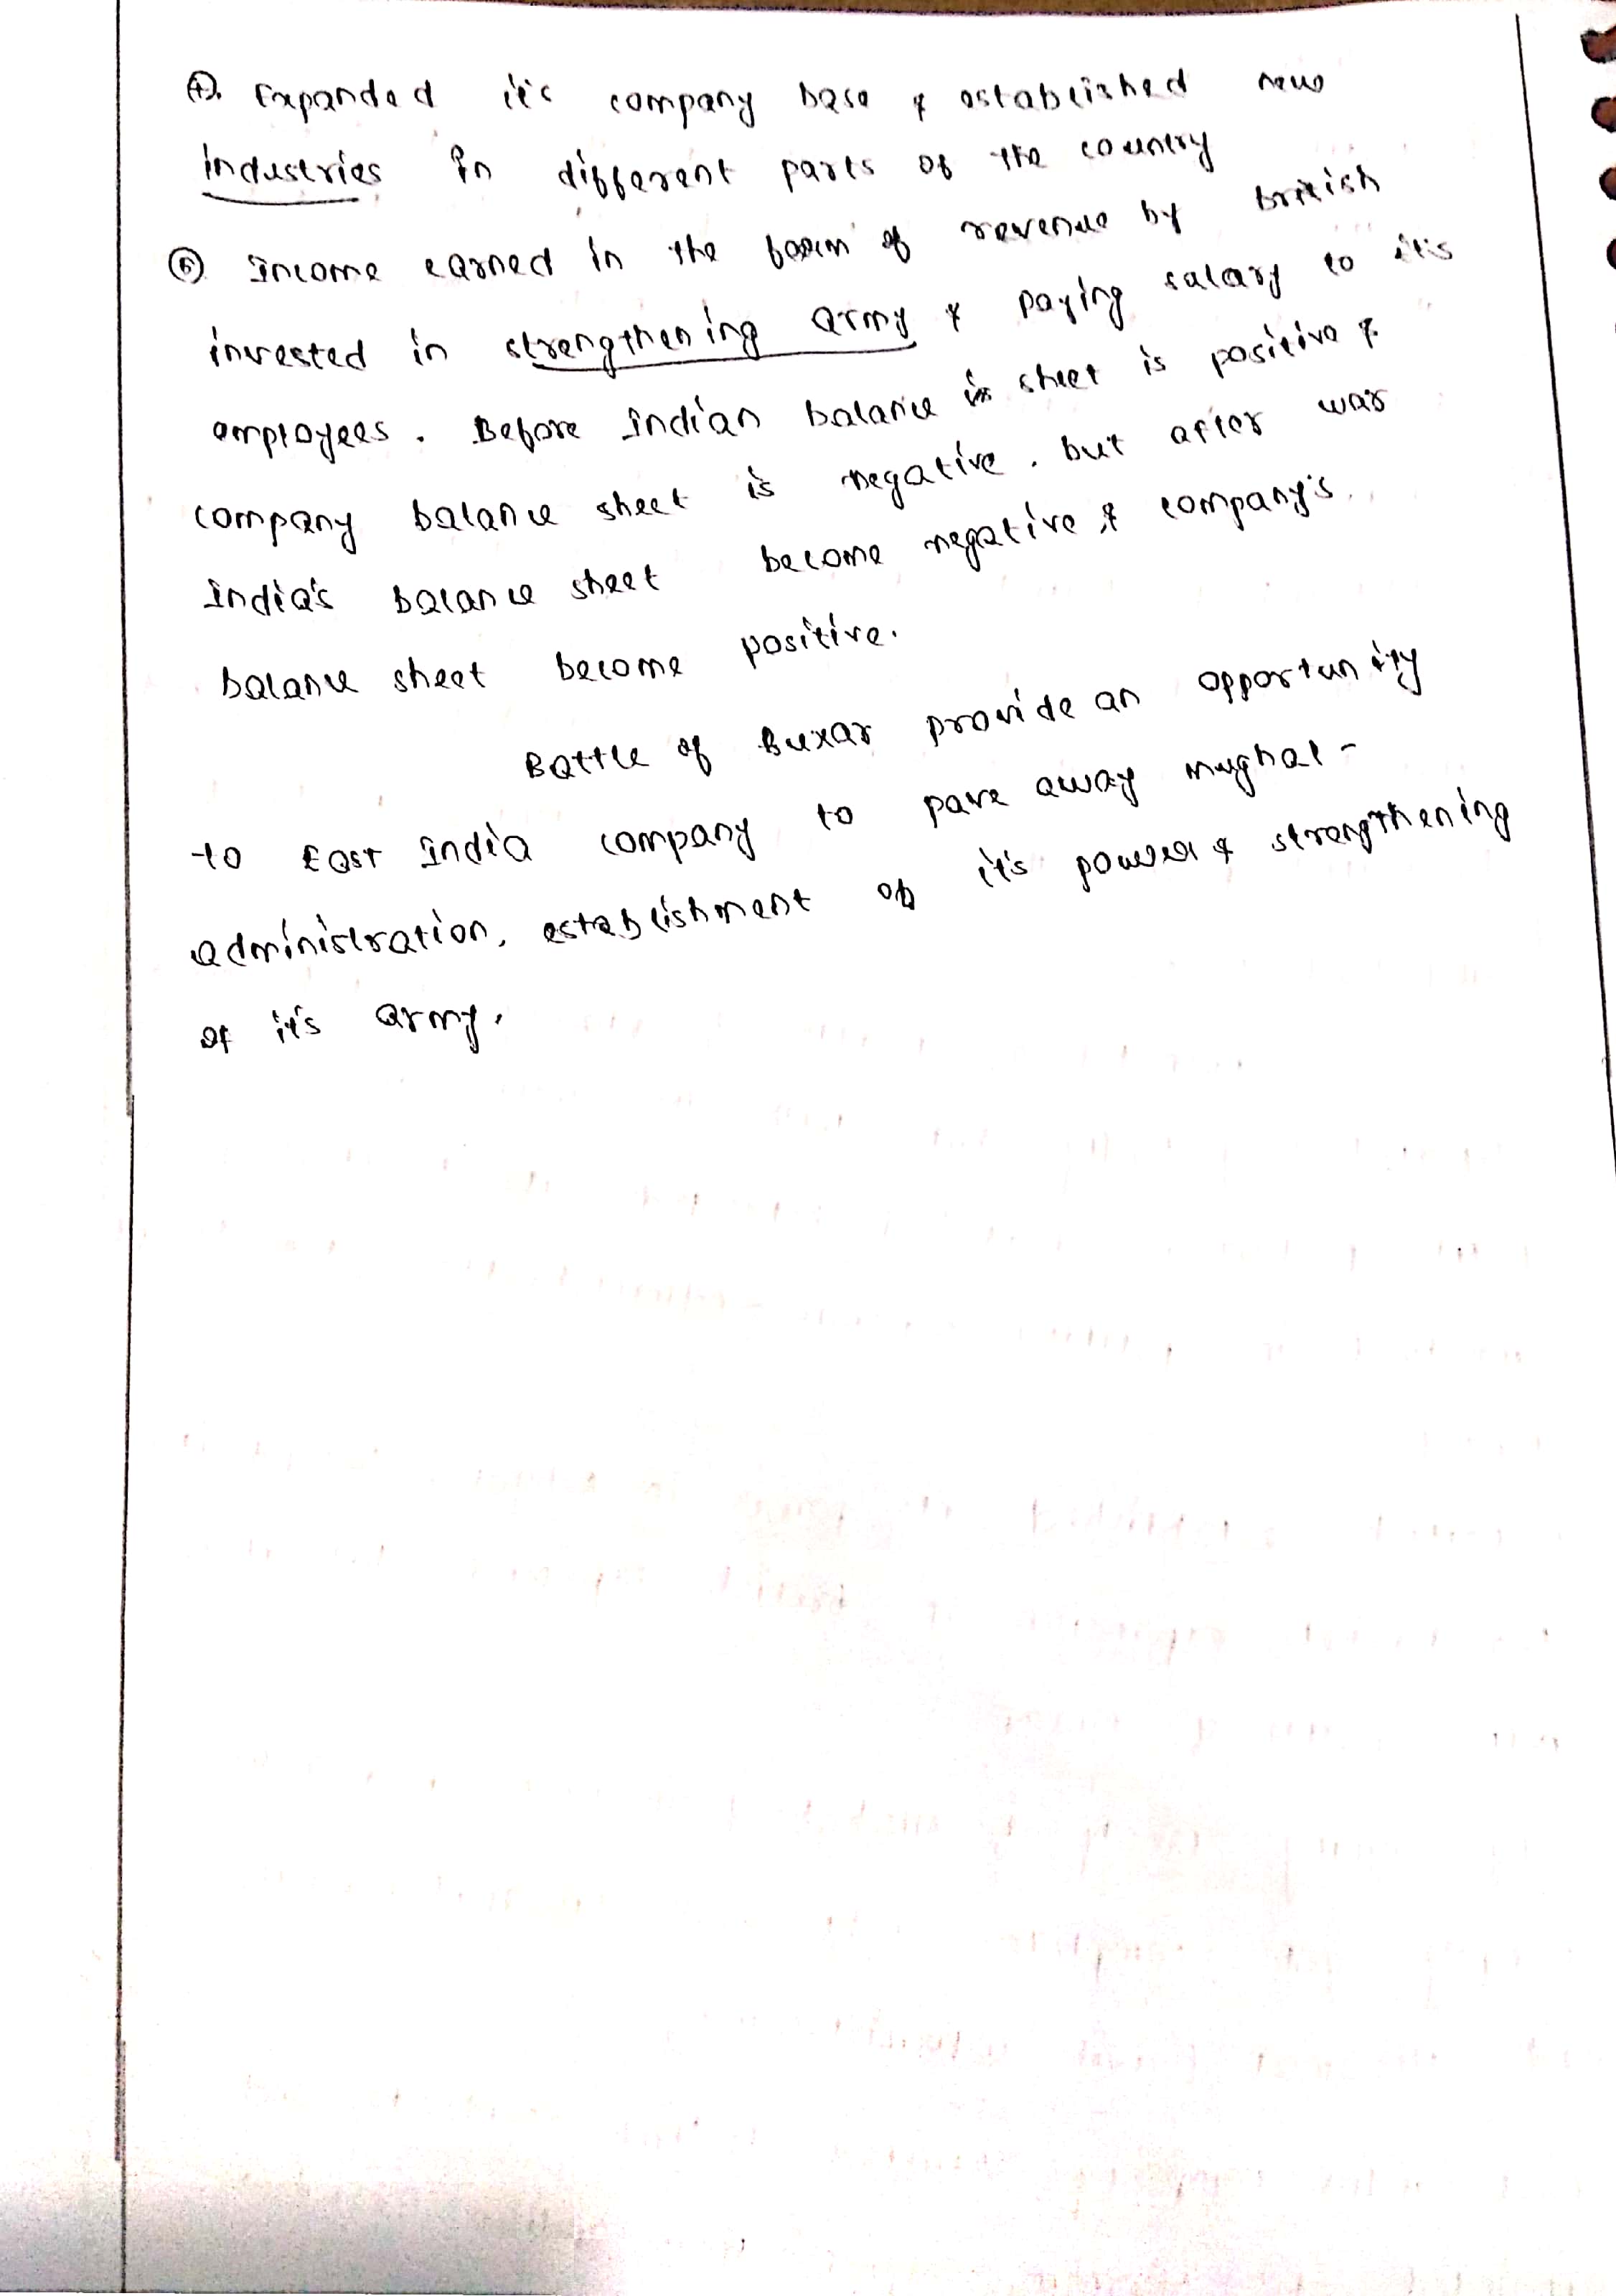 ④. Expanded it's company base & established new
industries in different parts of the country
⑤. Income earned in the form of revenue by British
invested in strengthening army & paying salary to it's
employees. Before Indian balance sheet is positive &
company balance sheet is negative. but after war
India's balance sheet become negative & company's.
balance sheet become positive.
Battle of Buxar provide an opportunity
to East India company to pave away mughal-
administration, establishment of it's power & strengthening
of it's army.